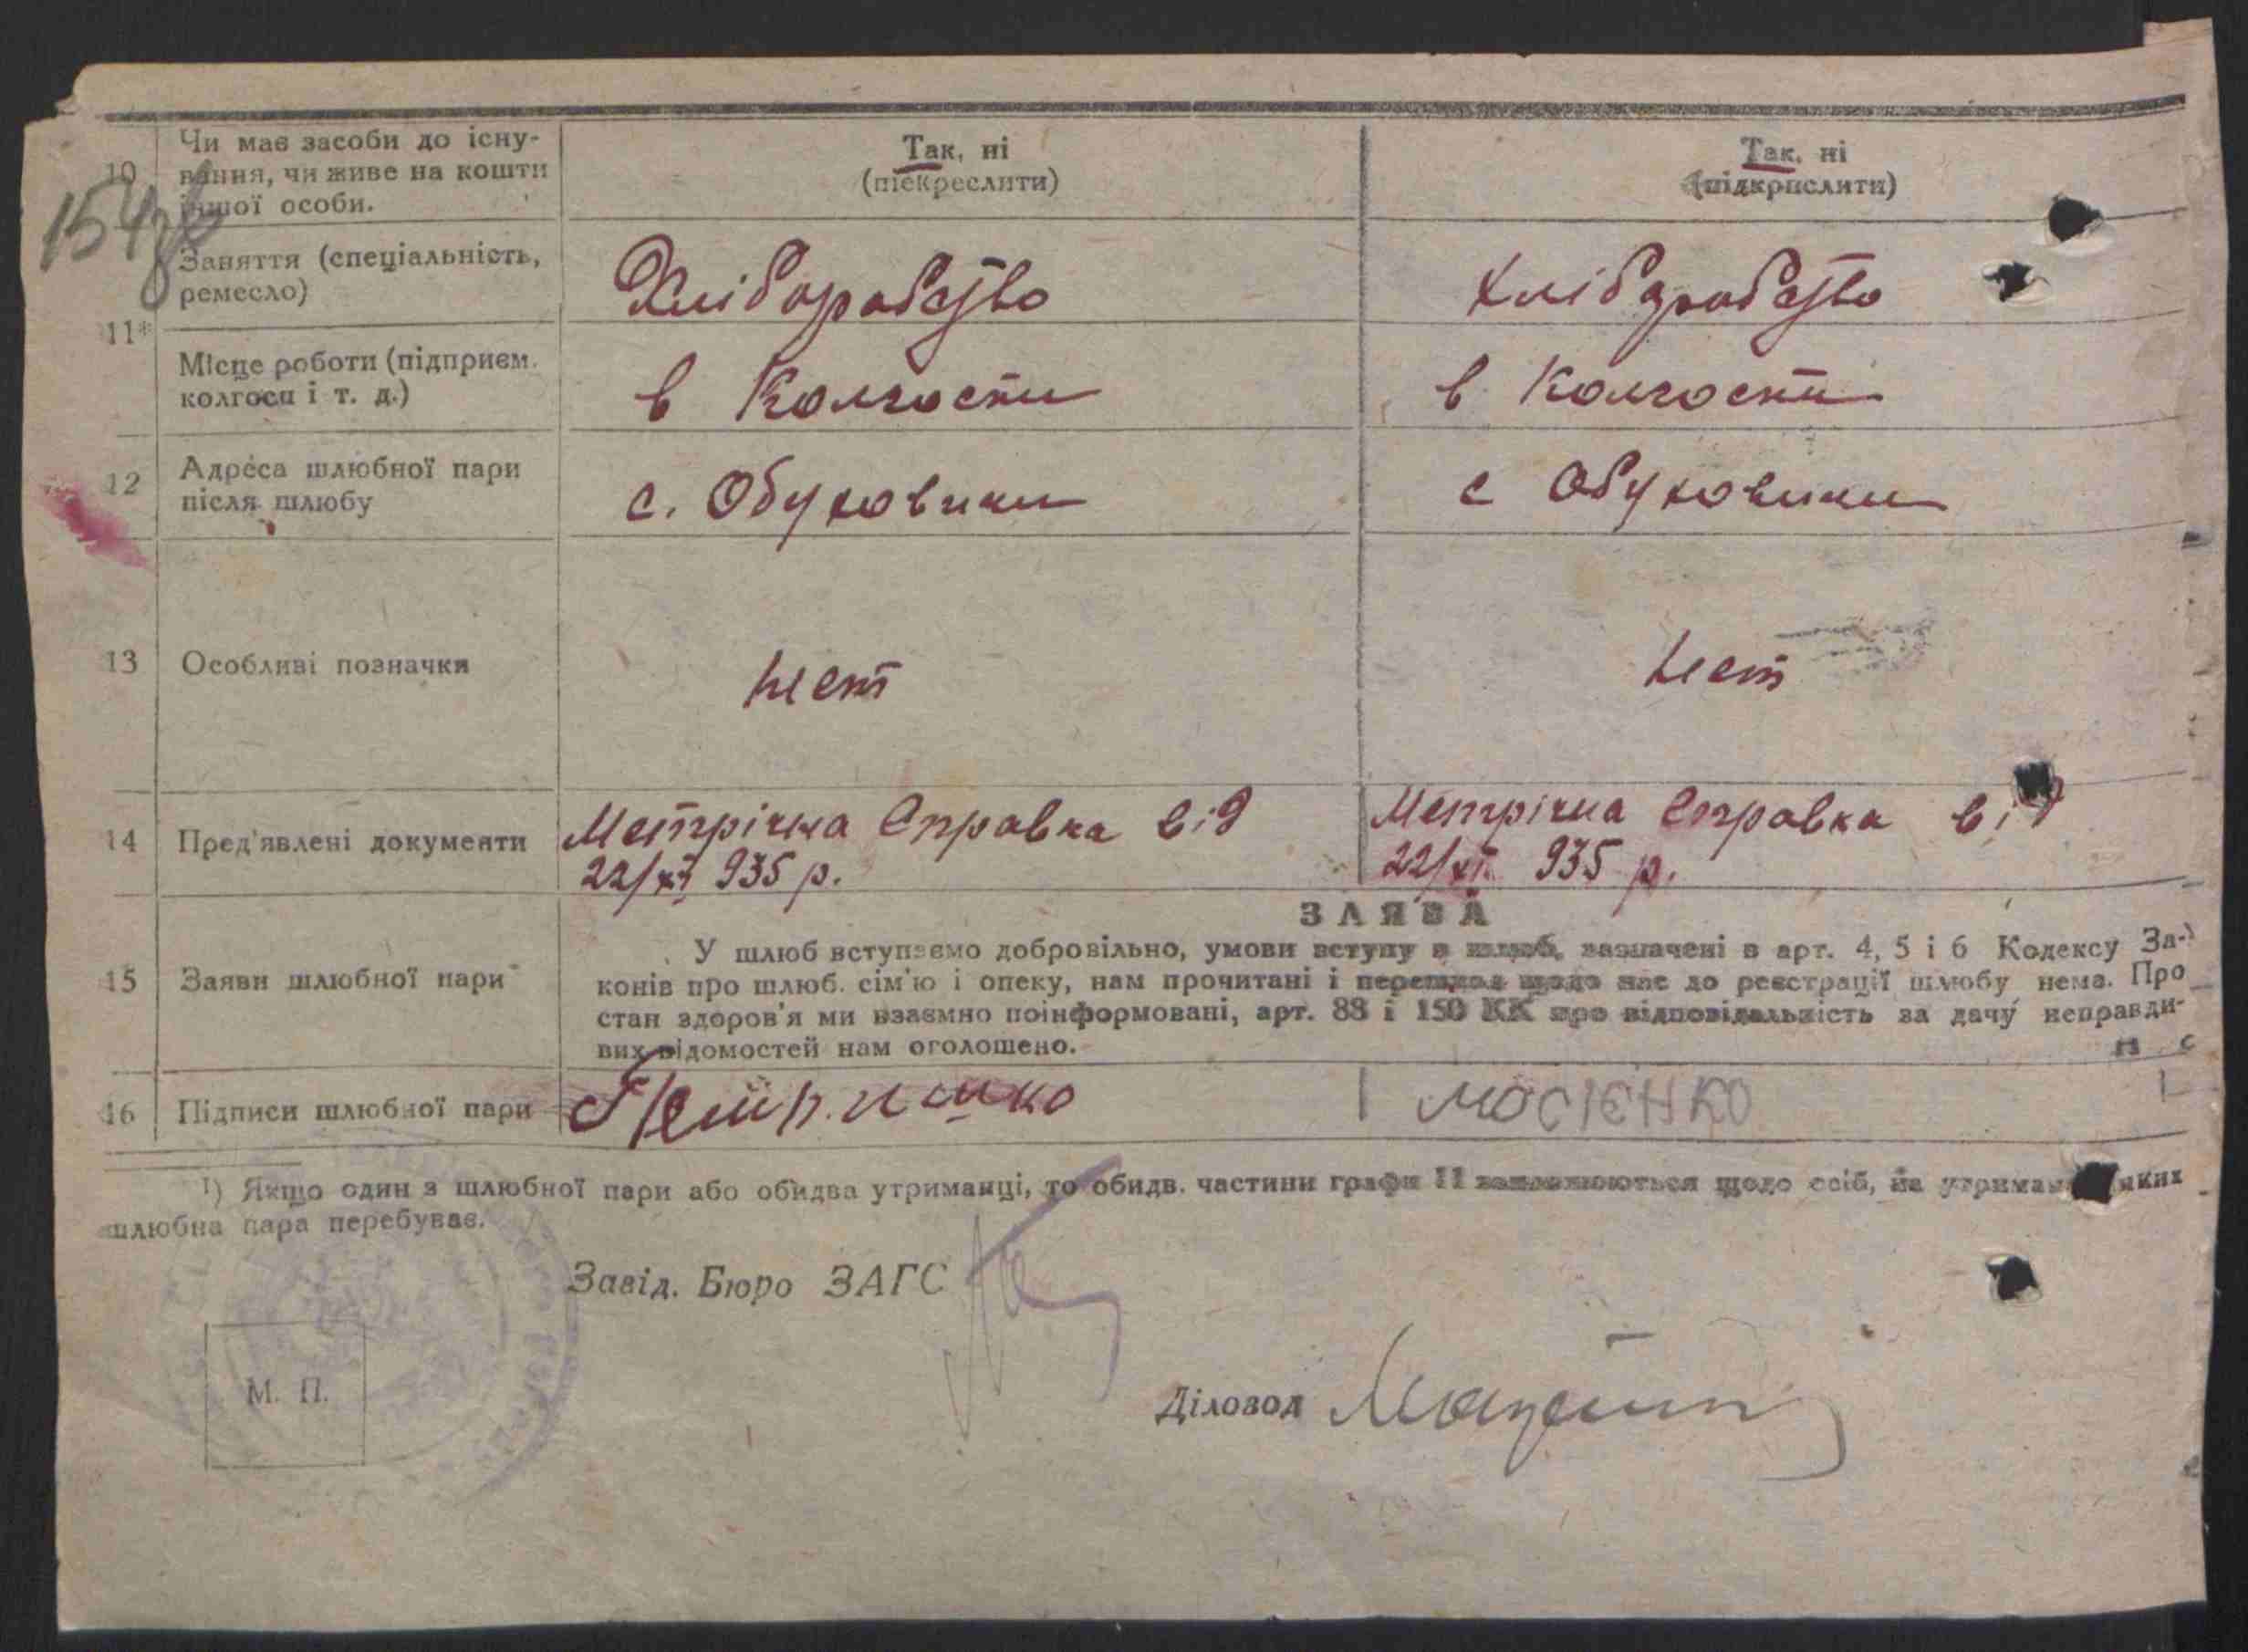 10
Чи має засоби до існу-
вання, чи живе на кошти
іншої особи.
Так, ні
(підкреслити)
Так, ні
(підкрислити)
154зв
11*
Заняття (спеціальність,
ремесло)
Хліборобство
Хліборобство
Місце роботи (підприєм.
колгосп і т. д.)
в Колгоспи
в Колгоспи
12
Адреса шлюбної пари
після шлюбу
с. Обуховичи
с Обуховичи
13
Особливі позначки
нет
нет
14
Пред'явлені документи
Метрічна Справка від
22/XI 935 р.
Метрічна Справка від
22/XI 935 р.
15
Заяви шлюбної пари
ЗАЯВА
У шлюб вступаємо добровільно, умови вступу в шлюб, зазначені в арт. 4, 5 і 6 Кодексу За-
конів про шлюб. сім'ю і опеку, нам прочитані і перешкод щодо нас до реєстрації шлюбу нема. Про
стан здоров'я ми взаємно поінформовані, арт. 88 і 150 КК про відповідальність за дачу неправди-
вих відомостей нам оголошено.
16
Підписи шлюбної пари
МОСІЄНКО
1) Якщо один з шлюбної пари або обидва утриманці, то обидв. частини графи 11 заповнюються щодо осіб, на яких
шлюбна пара перебуває.
Завід. Бюро ЗАГС
М. П.
Діловод